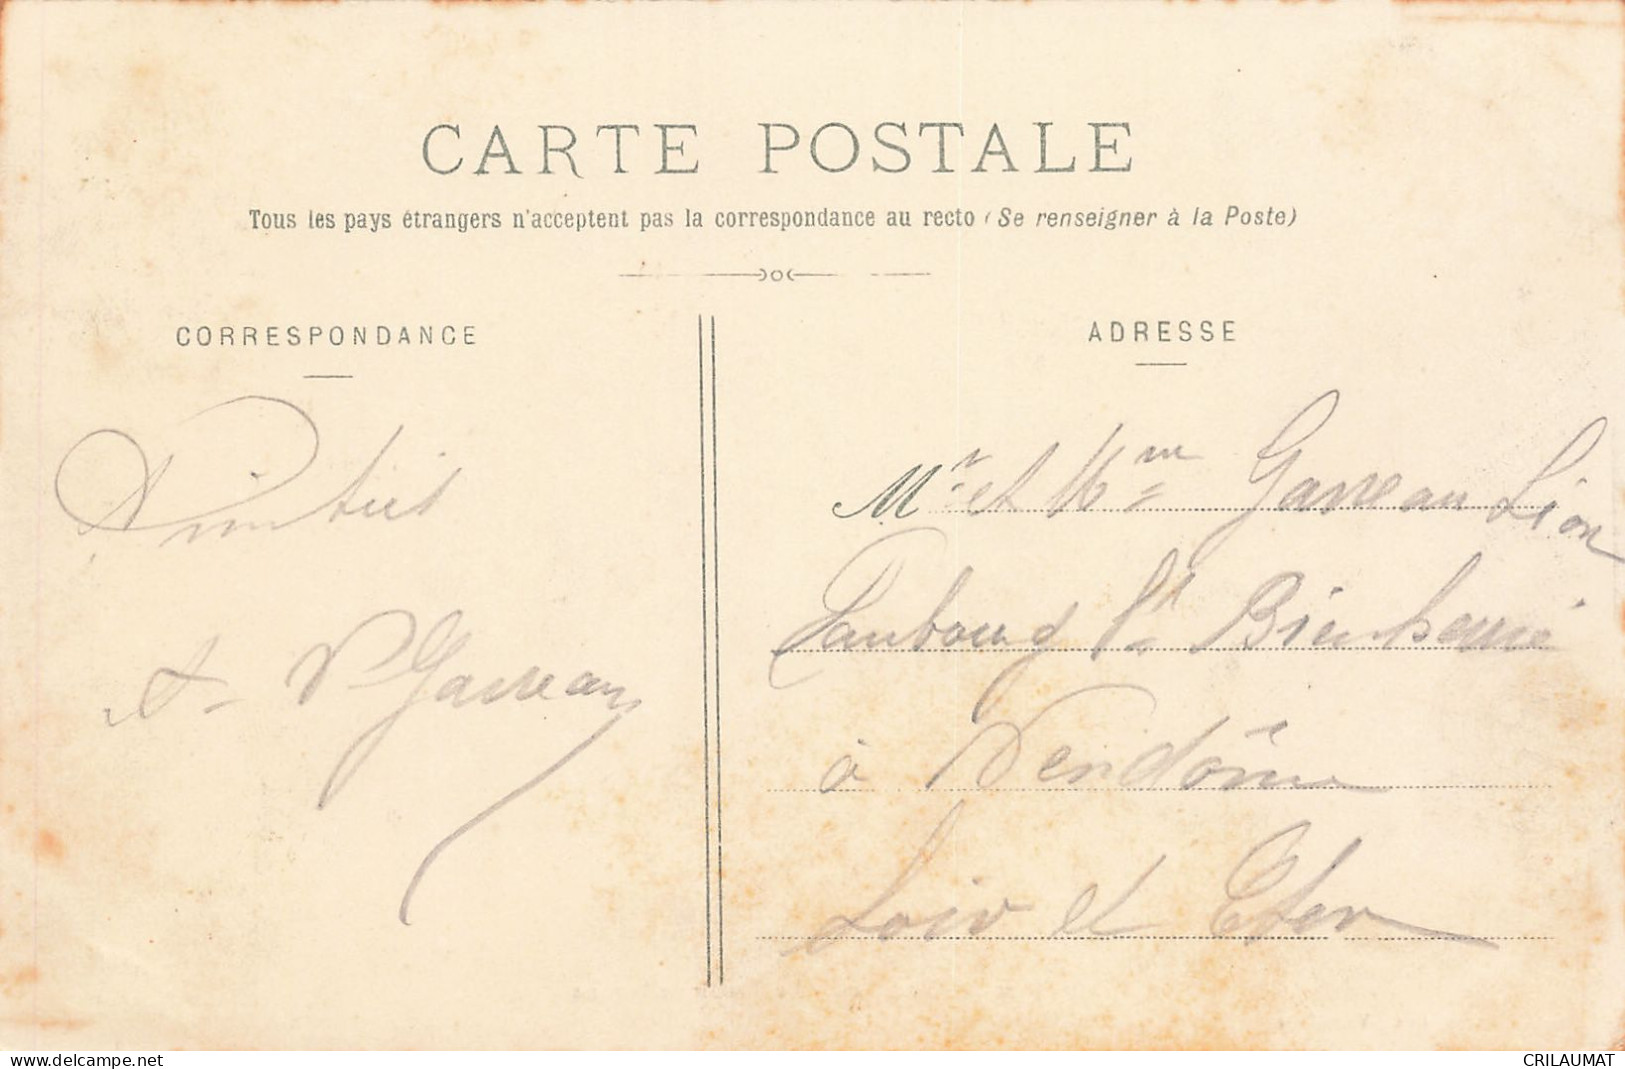 CARTE POSTALE
Tous les pays étrangers n'acceptent pas la correspondance au recto (Se renseigner à la Poste)
CORRESPONDANCE
ADRESSE
Amitiés
Garreau
Mr et Mme Garreau Léon
Faubourg St Bienheuré
à Vendôme
Loir et Cher
www.delcampe.net
CRILAUMAT